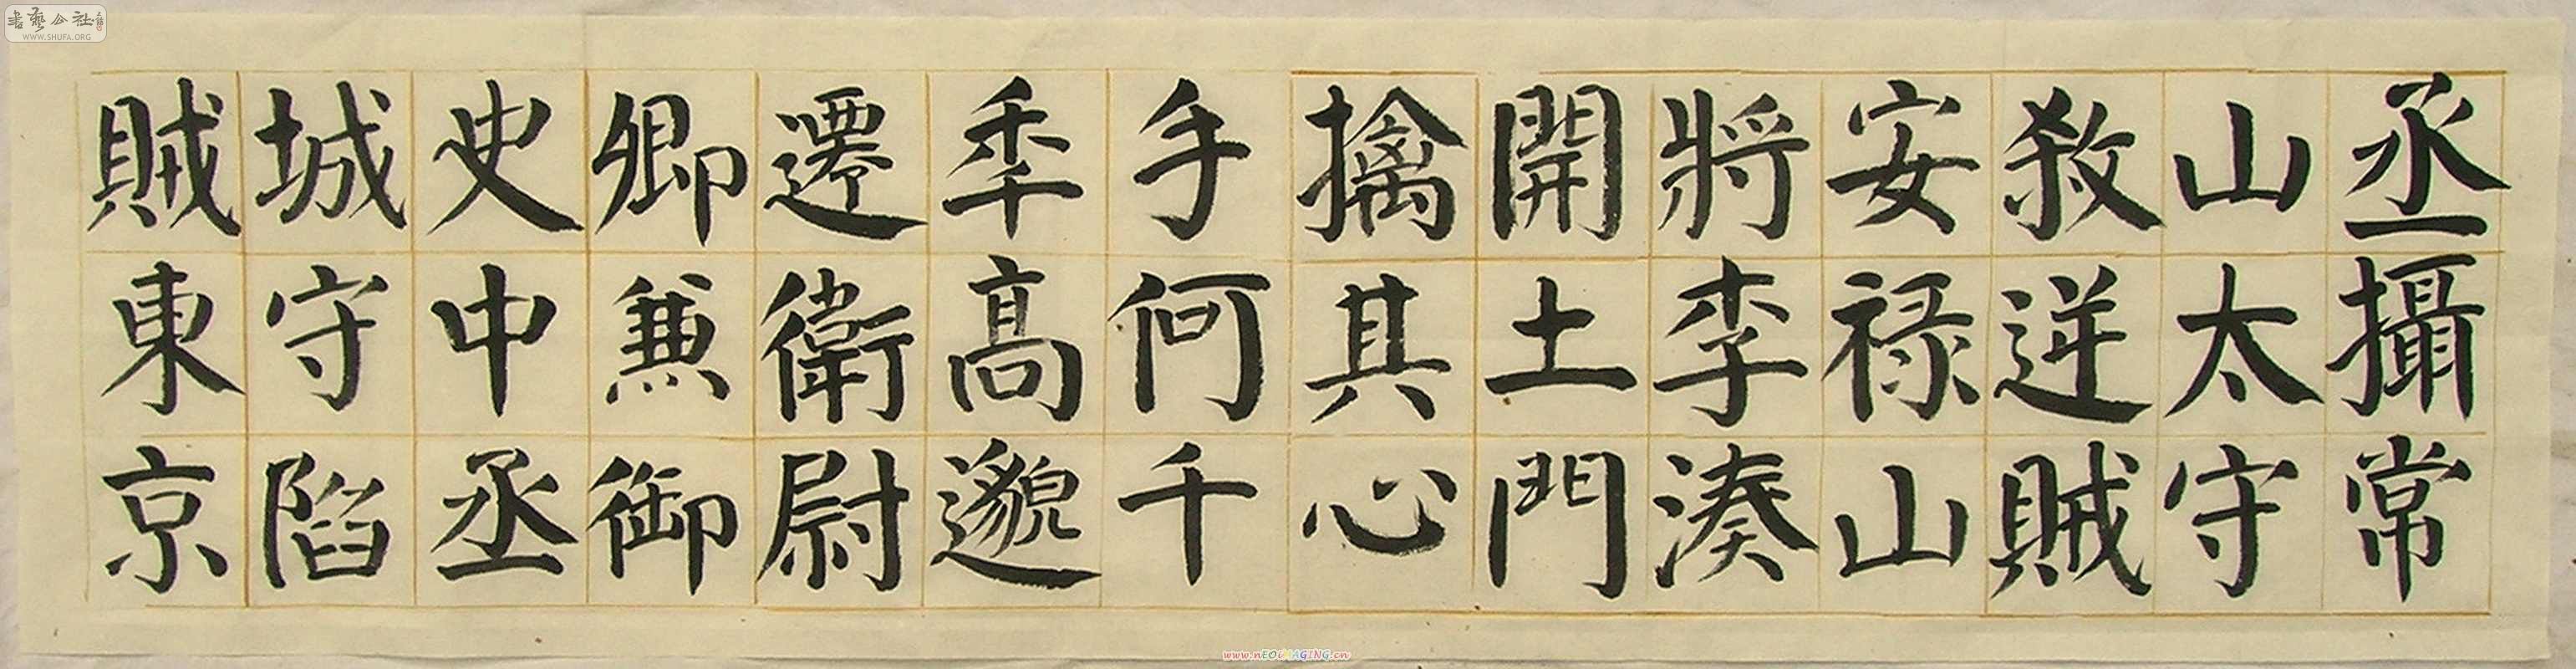 丞攝常
山太守
殺逆賊
安禄山
將李湊
開土門
擒其心
手何千
秊高邈
遷衛尉
卿兼御
史中丞
城守陷
賊東京
書藝公社
WWW.SHUFA.ORG
www.nEOiMAGING.cn